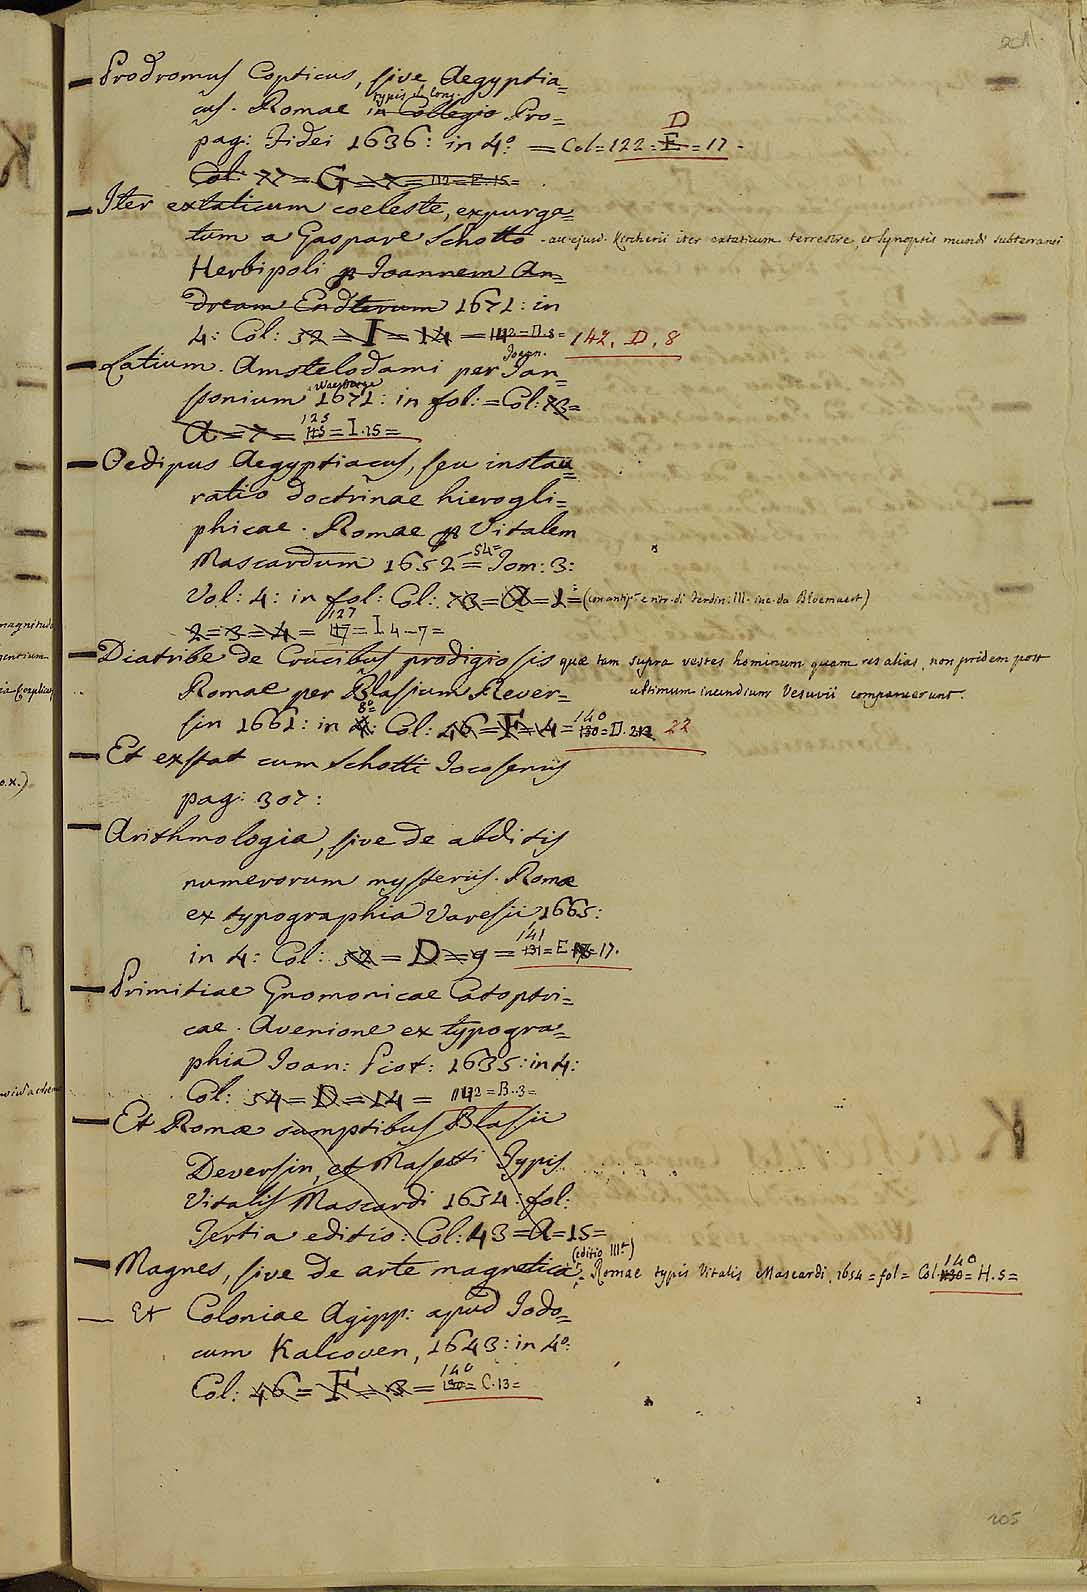 201
Prodromus Copticus, sive Aegyptia=
cus. Romae in Collegio Pro=
typis S. Cong.
pag: Fidei 1636: in 4º = Col=122= E =17.
D
Col: 77=G=7=112=E.15=
Iter extaticum coeleste, expurga=
tum a Gaspare Schotto - acc. ejusd. Kircherii iter extaticum terrestre, et Synopsis mundi subterranei
Herbipoli p Joannem An=
dream Endterum 1671: in
4: Col: 52=I=14=142=D.8= 142, D, 8
Latium. Amstelodami per Jan=
Joan.
ssonium 1671: in fol:=Col: 73=
Waesberge
A=7= 115=I.15=
125
Oedipus Aegyptiacus, seu instau
ratio doctrinae hierogli=
phicae. Romae p Vitalem
Mascardum 1652= Tom: 3:
54=
Vol: 4: in fol: Col: 73=A=1=(con antip. e ritr. di Ferdin: III. inc. da Bloemaert)
2=3=4= 117=I 4-7=
127
Diatribe de Crucibus prodigiosis quae tam supra vestes hominum quam res alias, non pridem post
Romae per Blasium Dever= ultimum incendium Vesuvii comparuerunt.
sin 1661: in 4: Col: 46=F=4=130=D. 22
8º 140
Et exstat cum Schotti Jocoseriis
pag: 307:
Arithmologia, sive de abditis
numerorum mysteriis. Romae
ex typographia Varesii 1665:
in 4: Col: 52=D=9=131=E =17.
141
Primitiae Gnomonicae Catoptri=
cae. Avenione ex typogra=
phia Joan: Piot: 1635: in 4:
Col: 54=D=14= 142=B.3=
Et Romae sumptibus Blasii
Deversin, et Masotti Typis
Vitalis Mascardi 1654: fol:
Tertia editio: Col: 43=A=15=
(editio IIIª)
Magnes, sive de arte magnetica. Romae typis Vitalis Mascardi, 1654=fol= Col. 130= H.5=
140
Et Coloniae Agipp: apud Jodo=
cum Kalcoven, 1643: in 4º:
Col: 46=F=3=130= C.13=
140
205